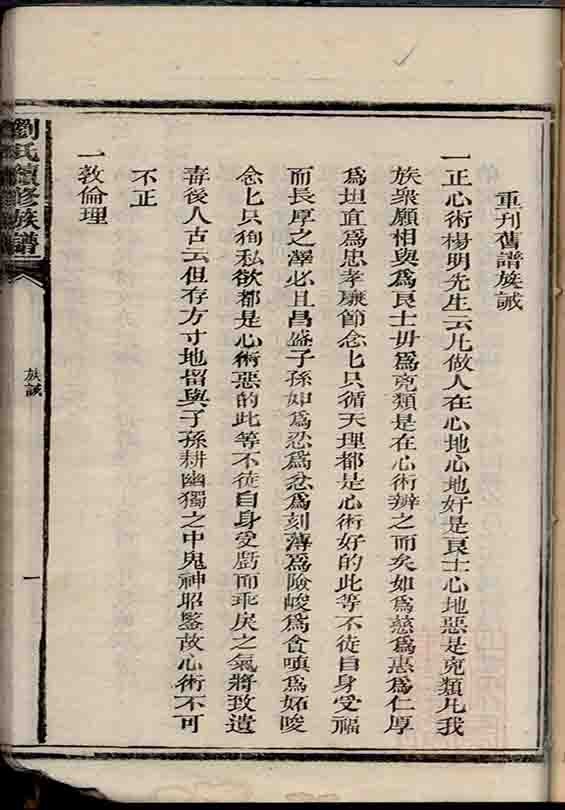 重刊舊譜族誡
一正心術楊明先生云凡做人在心地心地好是良士心地惡是兇類凡我
族衆願相與爲良士毋爲兇類是在心術辨之而矣如爲慈爲惠爲仁厚
爲坦直爲忠孝廉節念匕只循天理都是心術好的此等不徒自身受福
而長厚之澤必且昌盛子孫如爲忍爲忿爲刻薄爲險峻爲貪嗔爲妬
念匕只狥私欲都是心術惡的此等不徒自身受戲而乖戾之氣將致遺
毒後人古云但存方寸地留與子孫耕幽獨之中鬼神昭鑒故心術不可
不正
一敦倫理
劉氏續修族譜
族誡
一